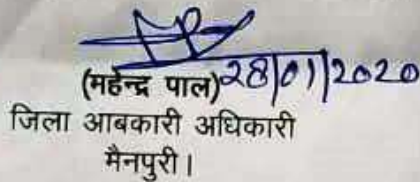 (महेन्द्र पाल) 28/01/2020
जिला आबकारी अधिकारी
मैनपुरी।